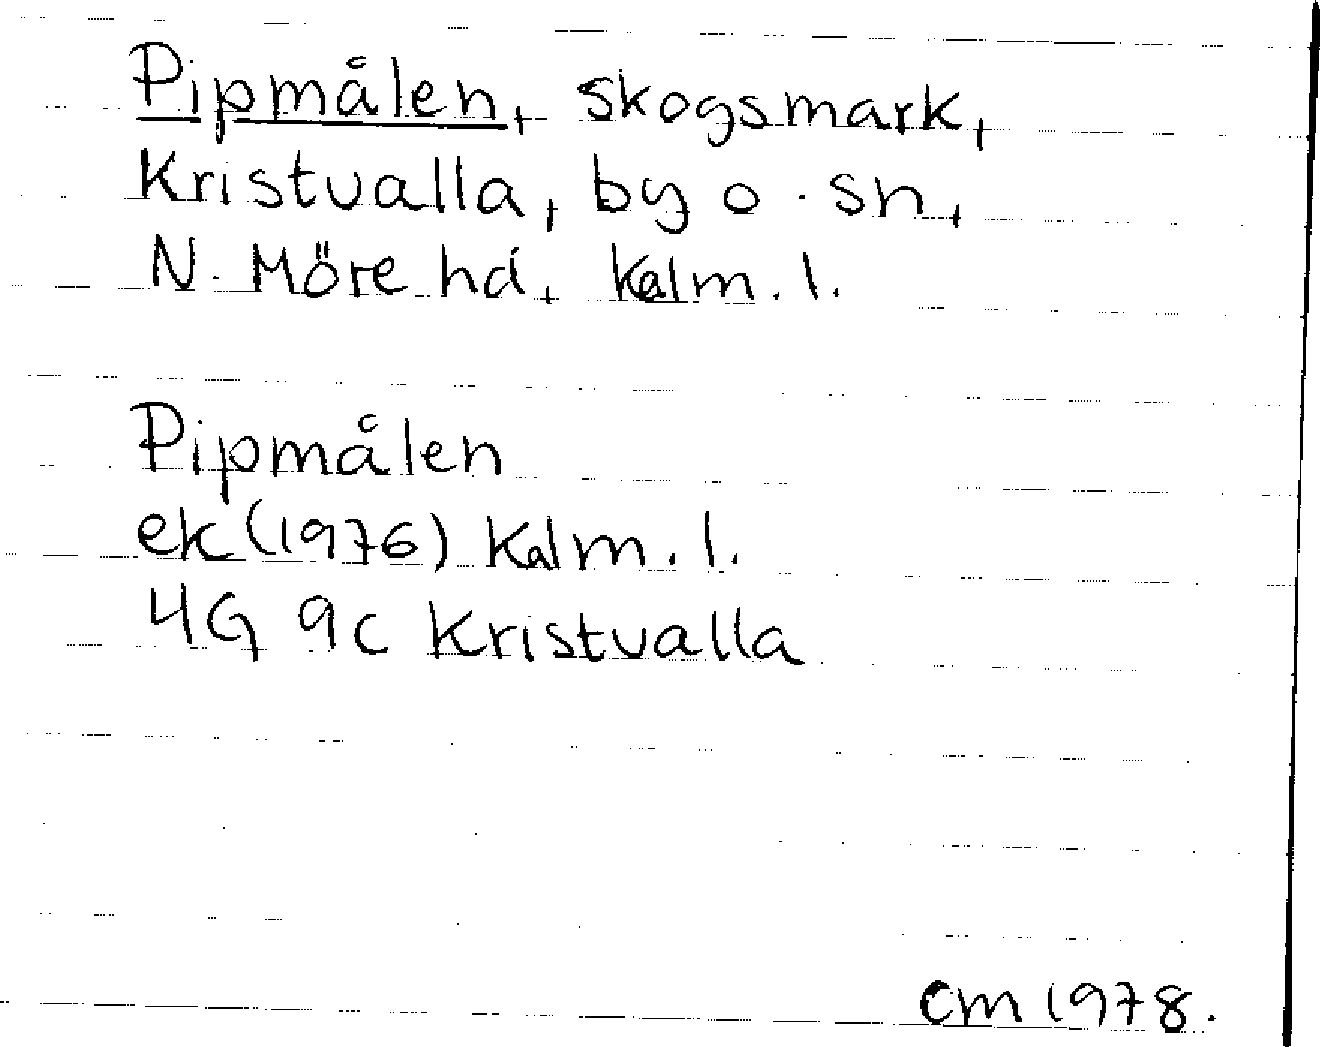 Pipmålen, skogsmark,
Kristvalla, by o. sn,
N. Möre hd, Kalm. l.
Pipmålen
ek (1976) Kalm. l.
4G 9c Kristvalla
CM 1978.